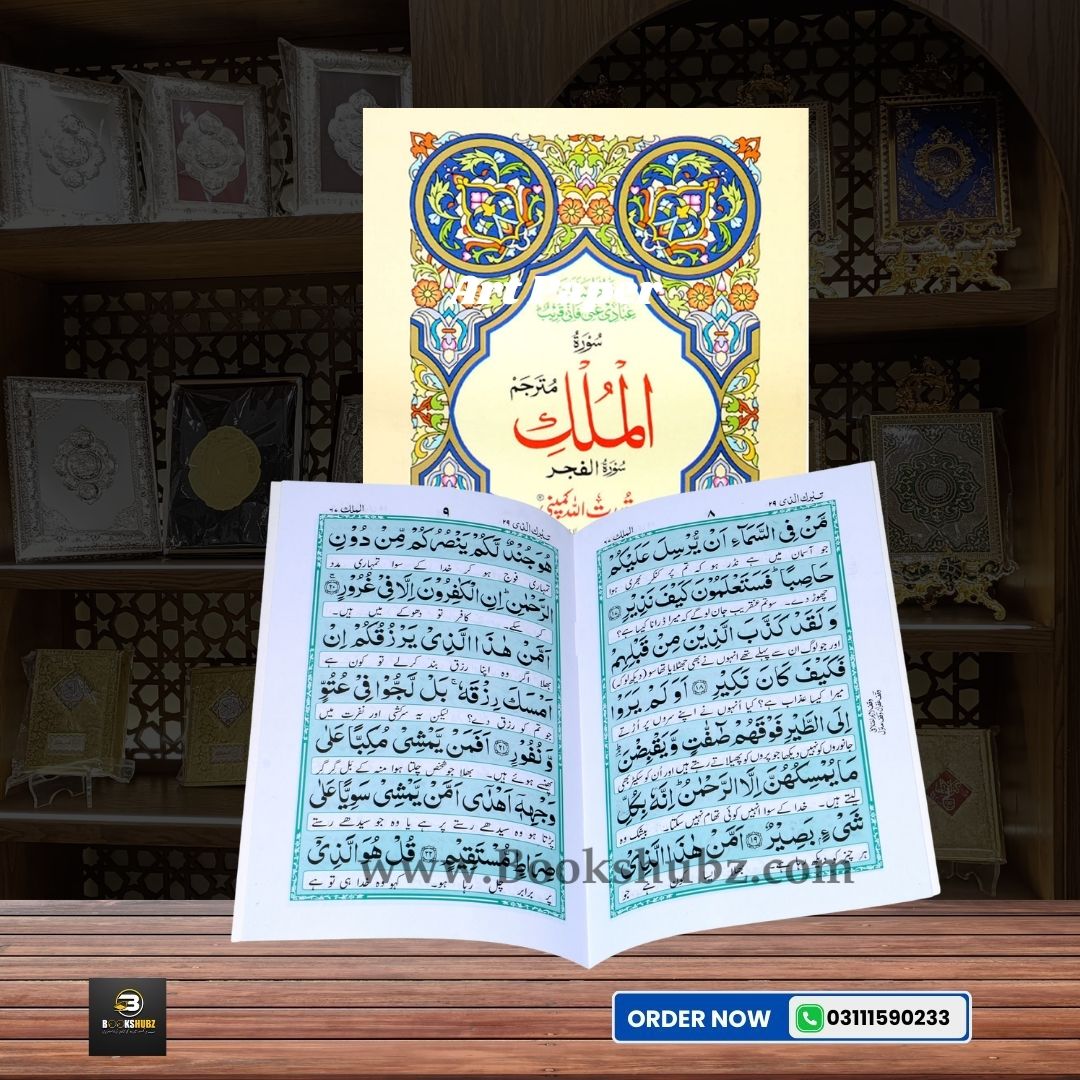 Art Paper
عِبَادِیْ عَنِّیْ فَاِنِّیْ قَرِیْبٌ
سُوْرَةُ
الْمُلْكِ
مُتَرجَمْ
سُوْرَةُ الفجر
قُدرت اللہ کمپنی
تبٰرك الذی ٢٩
٨
الملك ٦٧
مَّنْ فِی السَّمَآءِ اَنْ یُّرْسِلَ عَلَیْكُمْ
جو آسمان میں ہے نڈر ہو کہ تم پر کنکر بھری ہوا
حَاصِبًا ؕ فَسَتَعْلَمُوْنَ كَیْفَ نَذِیْرِ ﴿١٧﴾
چھوڑ دے۔ سو تم عنقریب جان لو گے کہ میرا ڈرانا کیسا ہے؟
وَ لَقَدْ كَذَّبَ الَّذِیْنَ مِنْ قَبْلِهِمْ
اور جو لوگ ان سے پہلے تھے انہوں نے بھی جھٹلایا تھا سو (دیکھ لو کہ)
فَكَیْفَ كَانَ نَكِیْرِ ﴿١٨﴾ اَوَ لَمْ یَرَوْا
میرا کیسا عذاب ہے؟ کیا انہوں نے اپنے سروں پر اُڑتے
اِلَی الطَّیْرِ فَوْقَهُمْ صٰٓفّٰتٍ وَّ یَقْبِضْنَ ؔۘ
جانوروں کو نہیں دیکھا جو پروں کو پھیلائے رہتے ہیں اور اُن کو سکیڑ بھی
مَا یُمْسِكُهُنَّ اِلَّا الرَّحْمٰنُ ؕ اِنَّهٗ بِكُلِّ
لیتے ہیں۔ خدا کے سوا انہیں کوئی تھام نہیں سکتا۔ بیشک وہ
شَیْءٍۭ بَصِیْرٌ ﴿١٩﴾ اَمَّنْ هٰذَا الَّذِیْ
ہر چیز جو
تبٰرك الذی ٢٩
٩
الملك ٦٧
هُوَ جُنْدٌ لَّكُمْ یَنْصُرُكُمْ مِّنْ دُوْنِ
تمہاری فوج ہو کر خدا کے سوا تمہاری مدد
الرَّحْمٰنِ ؕ اِنِ الْكٰفِرُوْنَ اِلَّا فِیْ غُرُوْرٍ ﴿٢٠﴾
کر سکے۔ کافر تو دھوکے میں ہیں۔
اَمَّنْ هٰذَا الَّذِیْ یَرْزُقُكُمْ اِنْ
بھلا اگر وہ اپنا رزق بند کر لے تو کون ہے
اَمْسَكَ رِزْقَهٗ ۚ بَلْ لَّجُّوْا فِیْ عُتُوٍّ
جو تم کو رزق دے؟ لیکن یہ سرکشی اور نفرت میں
وَّ نُفُوْرٍ ﴿٢١﴾ اَفَمَنْ یَّمْشِیْ مُكِبًّا عَلٰی
پھنسے ہوئے ہیں۔ بھلا جو شخص چلتا ہوا منہ کے بل گر گر
وَجْهِهٖۤ اَهْدٰۤی اَمَّنْ یَّمْشِیْ سَوِیًّا عَلٰی
پڑتا ہو وہ سیدھے رستے پر ہے یا وہ جو سیدھے رستے
صِرَاطٍ مُّسْتَقِیْمٍ ﴿٢٢﴾ قُلْ هُوَ الَّذِیْۤ
پر برابر چل رہا ہو۔ کہو کہ وہ خدا ہی تو ہے
www.Bookshubz.com
BOOKSHUBZ
ORDER NOW
03111590233